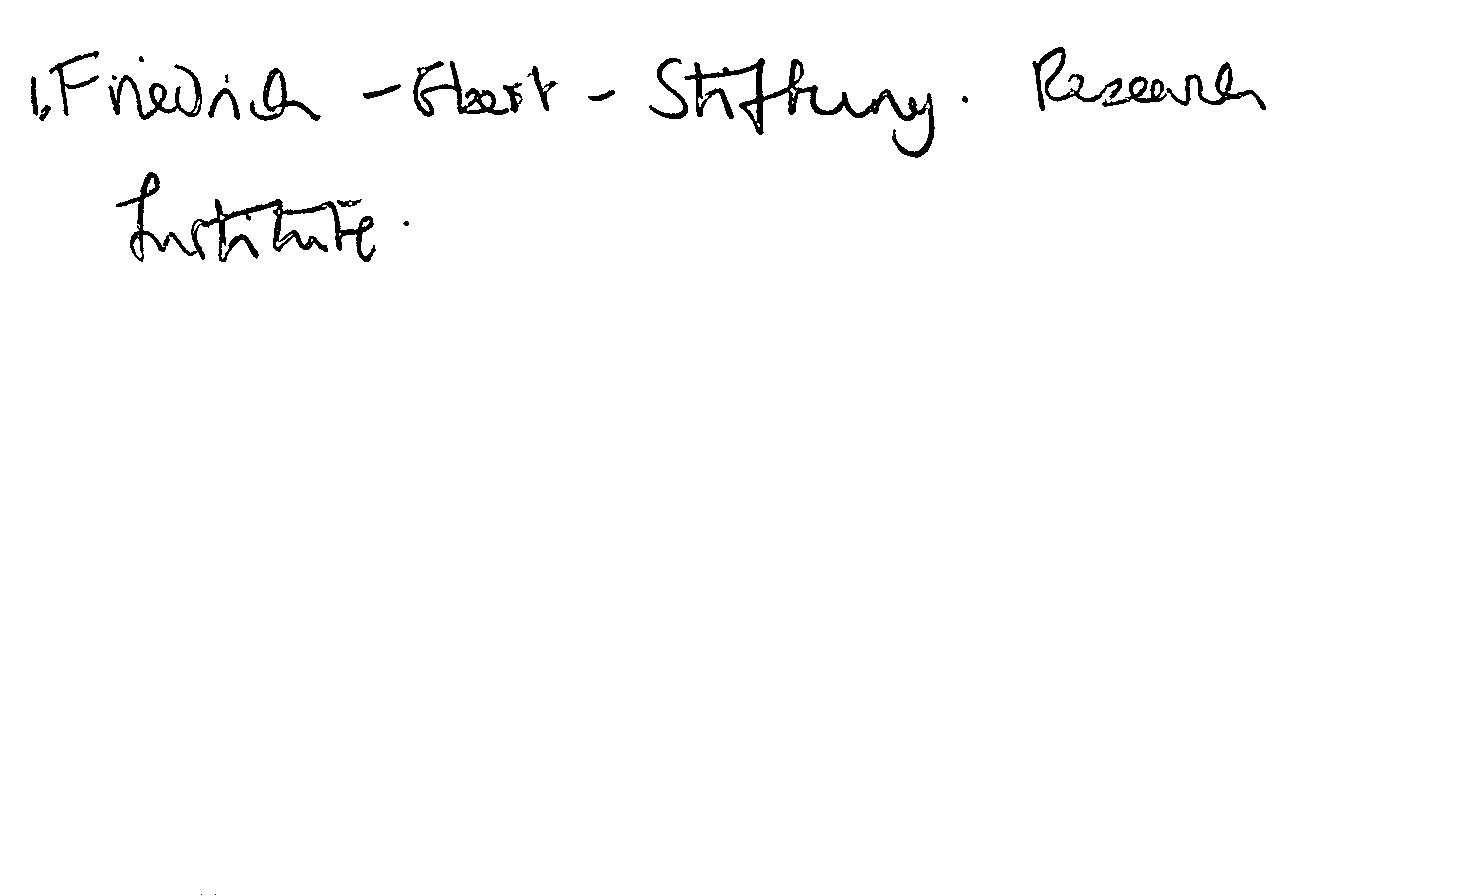 1. Friedrich - Ebert - Stiftung. Research
Institute.